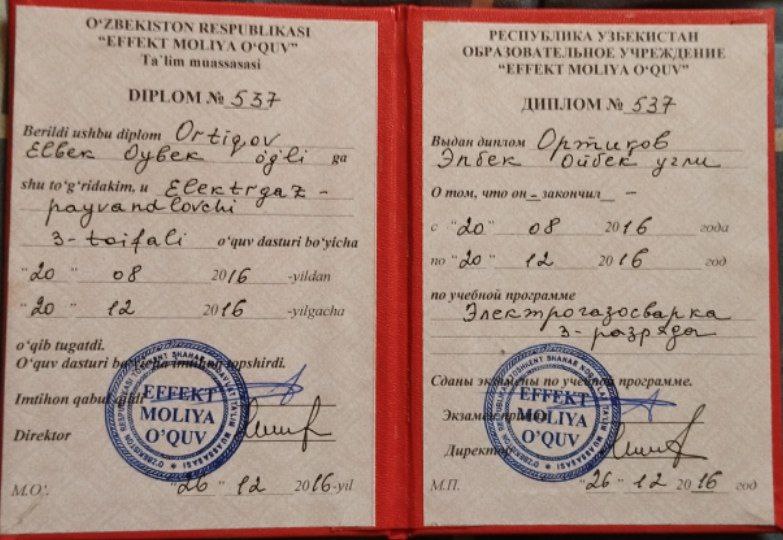 O‘ZBEKISTON RESPUBLIKASI
“EFFEKT MOLIYA O‘QUV”
Ta`lim muassasasi
DIPLOM № 537
Berildi ushbu diplom Ortiqov
Elbek Oybek o‘g‘li ga
shu to‘g‘ridakim, u Elektrgaz-
payvandlovchi
3-toifali o‘quv dasturi bo‘yicha
“20” 08 2016 -yildan
“20” 12 2016 -yilgacha
o‘qib tugatdi.
O‘quv dasturi bo‘yicha imtihon topshirdi.
Imtihon qabul qildi
Direktor
EFFEKT
MOLIYA
O’QUV
M.O‘. “26” 12 2016-yil
РЕСПУБЛИКА УЗБЕКИСТАН
ОБРАЗОВАТЕЛЬНОЕ УЧРЕЖДЕНИЕ
“EFFEKT MOLIYA O‘QUV”
ДИПЛОМ № 537
Выдан диплом Ортиков
Элбек Ойбек угли
О том, что он - закончил -
с “20” 08 2016 года
по “20” 12 2016 год
по учебной программе
Электрогазосварка
3-разряда
Сданы экзамены по учебной программе.
Экзамен принял
Директор
EFFEKT
MOLIYA
O’QUV
М.П. “26” 12 2016 год